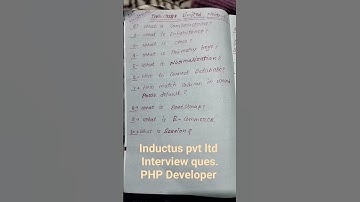 Inductus Limited
1- What is Constructor?
2- What is Inheritance?
3- What is class?
4- What is Primary keys?
5- What is Normalization?
6- How to Connect Database?
7- How match column in using
8- What is BootStrap?
9- What is E-Commerce
10- What is Session?
Inductus pvt ltd
Interview ques.
PHP Developer